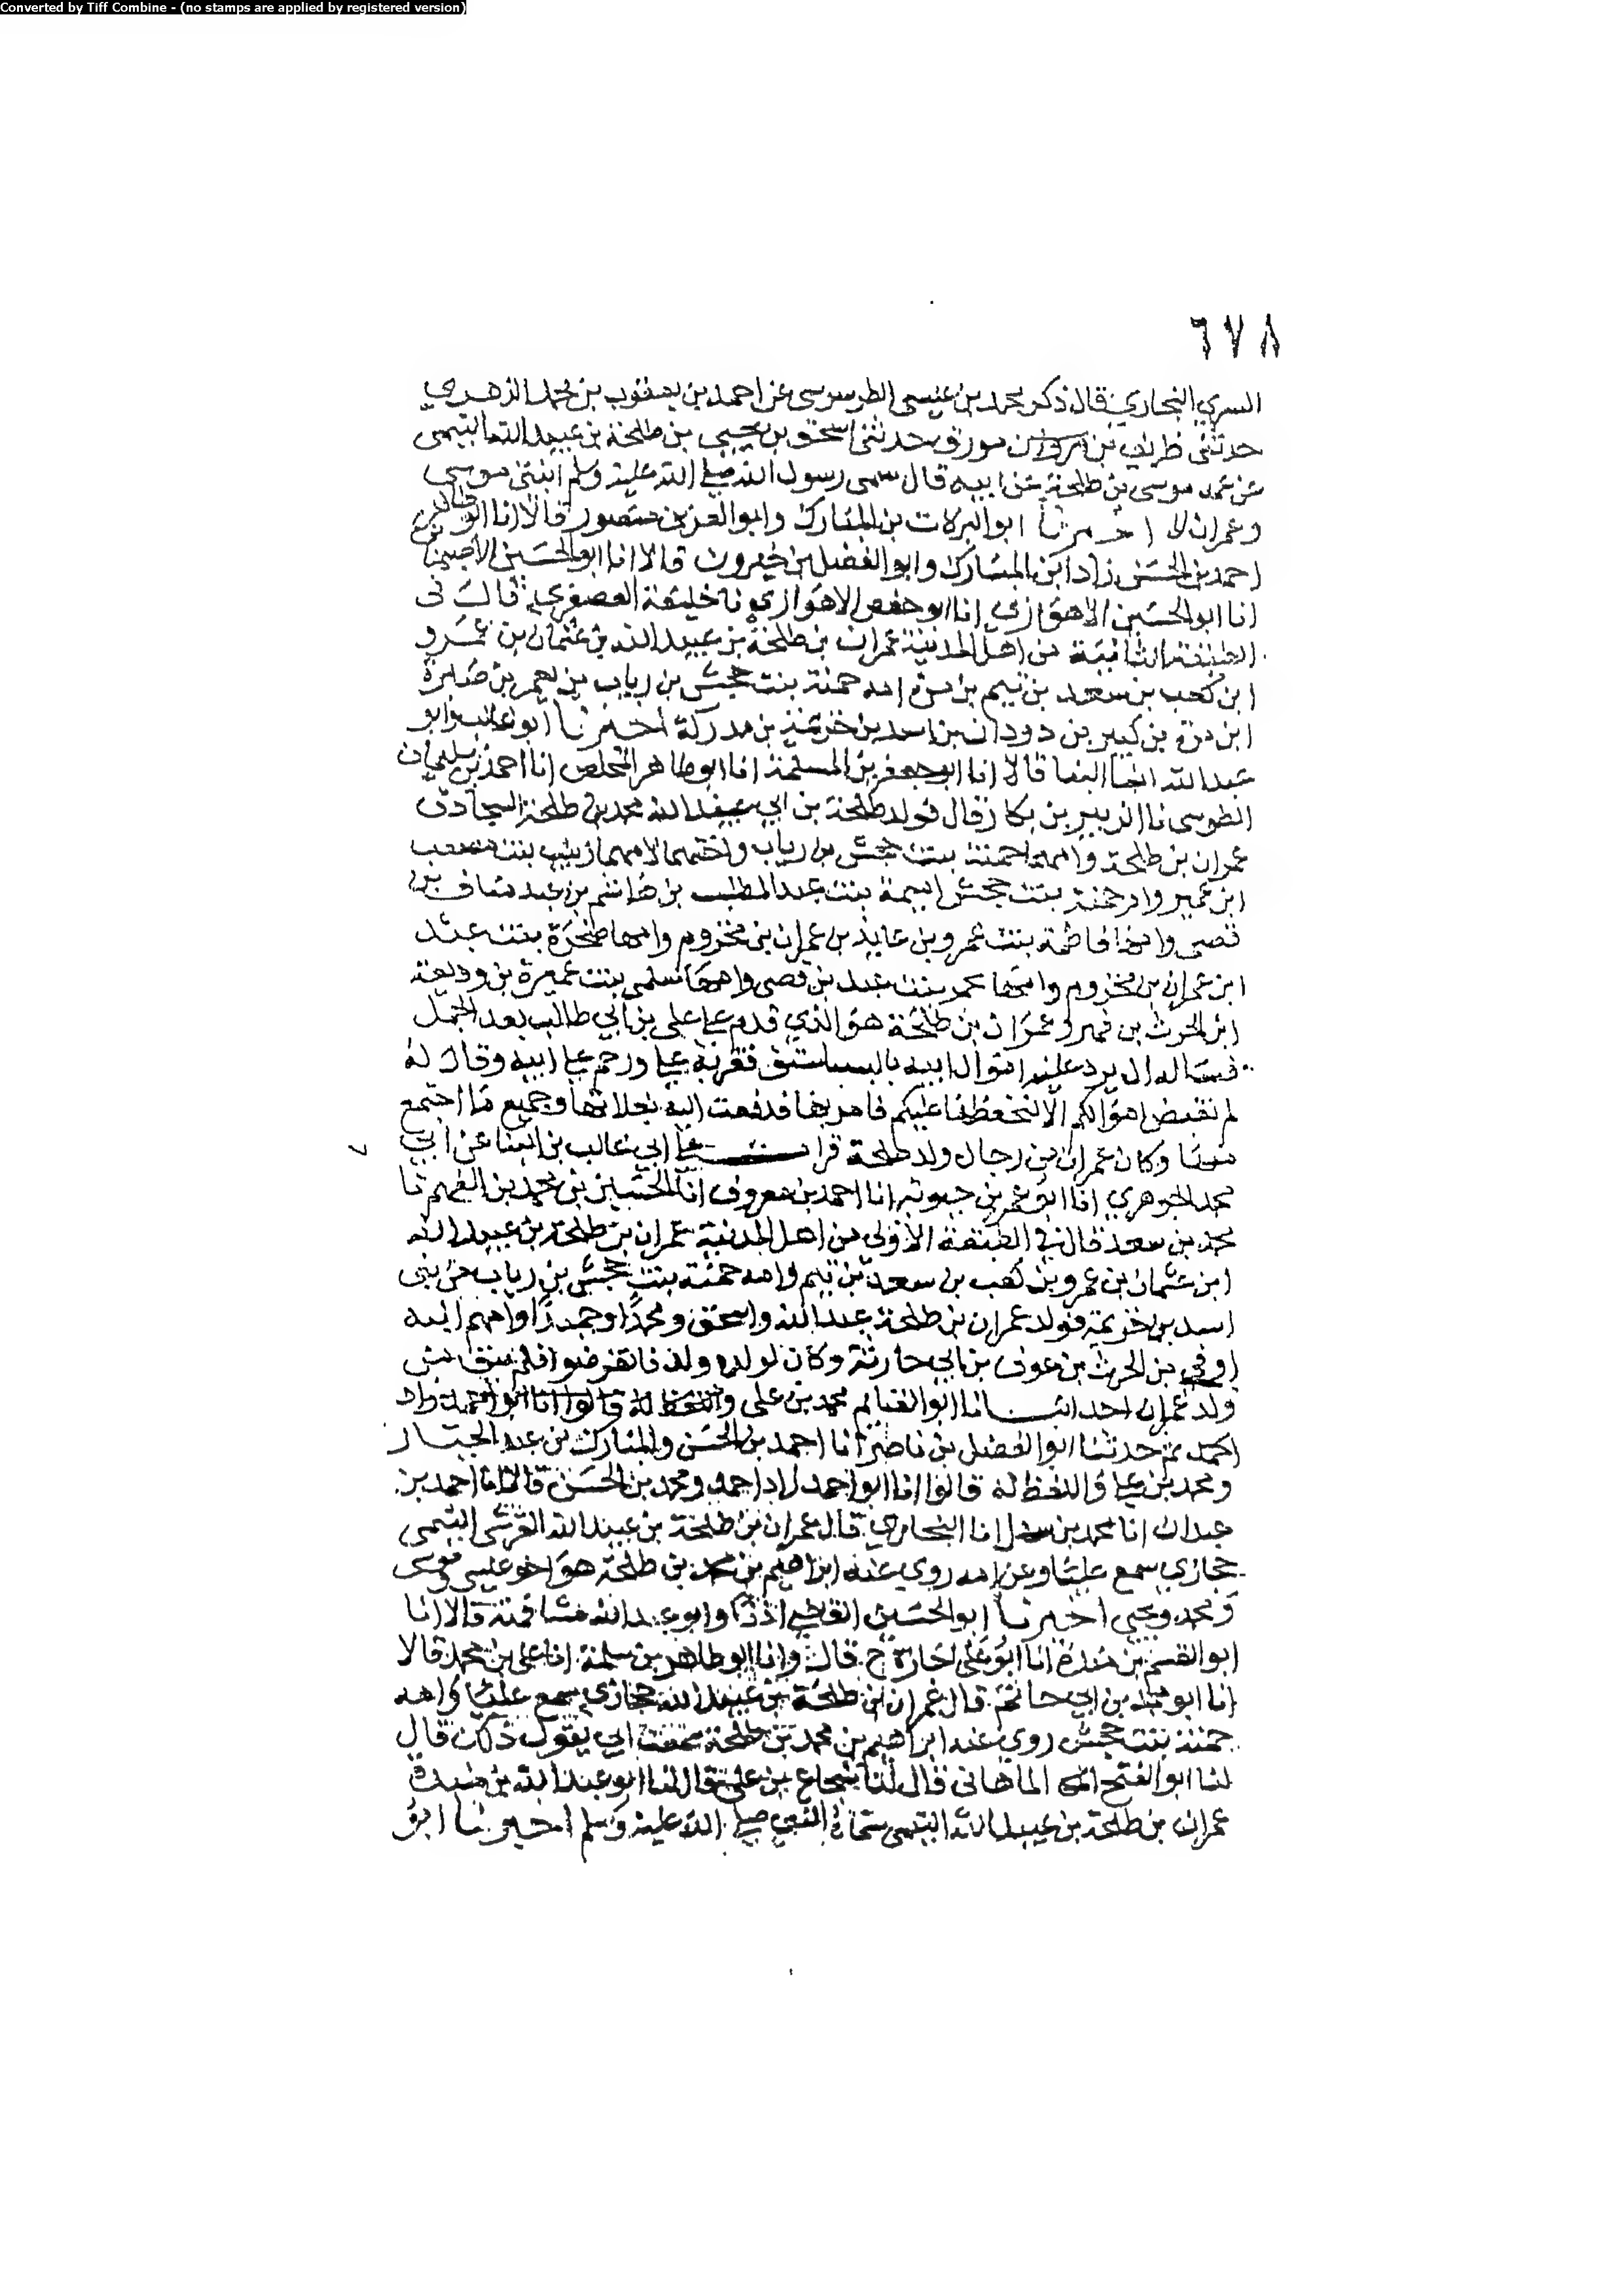 Converted by Tiff Combine - (no stamps are applied by registered version)
٦٧٨
السري البخاري قال ذكر محمد بن عيسى الطرسوسي عن احمد بن يعقوب بن محمد الزهري
حدثني ظريف بن مورق حدثني اسحق بن يحيى بن طلحة بن عبيد الله التيمى
عن عمه موسى بن طلحة عن ابيه قال سمى رسول الله صلى الله عليه وسلم ابنى موسى
وعمران اخبرنا ابو البركات بن المبارك وابو العز بن منصور قالا انا ابو طاهر
احمد بن الحسن زاد ابن المبارك وابو الفضل بن خيرون قالا انا ابو الحسين الاصبهاني
انا ابو الحسين الاهوازي انا ابو حفص الاهوازي نا خليفة العصفري قال في
الطبقة الثانية من اهل المدينة عمران بن طلحة بن عبيد الله بن عثمان بن عمرو
ابن كعب بن سعد بن تيم بن مرة امه حمنة بنت جحش بن رياب بن يعمر بن صابرة
ابن مرة بن كبير بن دودان بن اسد بن خزيمة بن مدركة اخبرنا ابو غالب وابو
عبد الله ابنا البنا قالا انا ابو جعفر بن المسلمة انا ابو طاهر المخلص انا احمد بن سليمان
الطوسى نا الزبير بن بكار قال فولد طلحة بن عبيد الله محمد بن طلحة السجاد
عمران بن طلحة وامهما حمنة بنت جحش بن رياب واختهما لامهما زينب بنت مصعب
ابن عمير وام حمنة بنت جحش اميمة بنت عبد المطلب بن هاشم بن عبد مناف بن
قصى وامها فاطمة بنت عمرو بن عايذ بن عمران بن مخزوم وامها صخرة بنت عبد
ابن عمران بن مخزوم وامها تخمر بنت عبد بن قصى وامها سلمى بنت عميرة بن وديعة
ابن الحرث بن فهر وعمران بن طلحة هو الذي قدم على على بن ابي طالب بعد الجمل
فساله ان يرد عليه اموال ابيه فقربه على ورحم على ابيه وقال له
لم نقبض اموالكم الا لنحفظها عليكم فامر بها فدفعت اليه بغلاتها وجميع ما اجتمع
منها وكان عمران من رجال ولد طلحة قرات على ابي غالب بن البنا عن ابي
محمد الجوهري انا ابو عمر بن حيويه انا احمد بن معروف انا الحسين بن محمد بن الفهم نا
محمد بن سعد قال في الطبقة الاولى من اهل المدينة عمران بن طلحة بن عبيد الله
ابن عثمان بن عمرو بن كعب بن سعد بن تيم وامه حمنة بنت جحش بن رياب من بنى
اسد بن خزيمة فولد عمران بن طلحة عبد الله واسحق ومحمدا وحميدا وامهم ابنه
اوفى بن الحرث بن عوف بن ابي حارثة وكان لولده ولد فانقرضوا فلم يبق من
ولد عمران احد انبانا ابو الغنايم محمد بن على
ثم حدثنا ابو الفضل بن ناصر انا احمد بن الحسن والمبارك بن عبد الجبار
ومحمد بن على واللفظ له قالوا انا ابو احمد زاد احمد ومحمد بن الحسن قالا انا احمد بن
عبدان انا محمد بن سهل انا البخاري قال عمران بن طلحة بن عبيد الله القرشى التيمى
حجازي سمع عليا وعن امه روي عنه ابراهيم بن محمد بن طلحة هو اخو عيسى وموسى
ومحمد ويحيى اخبرنا ابو الحسين القاضى اذنا وابو عبد الله مشافهة قالا انا
ابو القسم بن مندة انا ابو على اجازة ح قال وانا ابو طاهر بن سلمة انا على بن محمد قالا
انا ابو محمد بن ابي حاتم قال عمران بن طلحة بن عبيد الله حجازي سمع عليا وامه
حمنة بنت جحش روي عنه ابراهيم بن محمد بن طلحة سمعت ابي يقول ذلك قال
لنا ابو الفتح الماهاني قال لنا شجاع بن على قال لنا ابو عبد الله بن مندة
عمران بن طلحة بن عبيد الله التيمى سماه النبى صلى الله عليه وسلم اخبرنا ابو